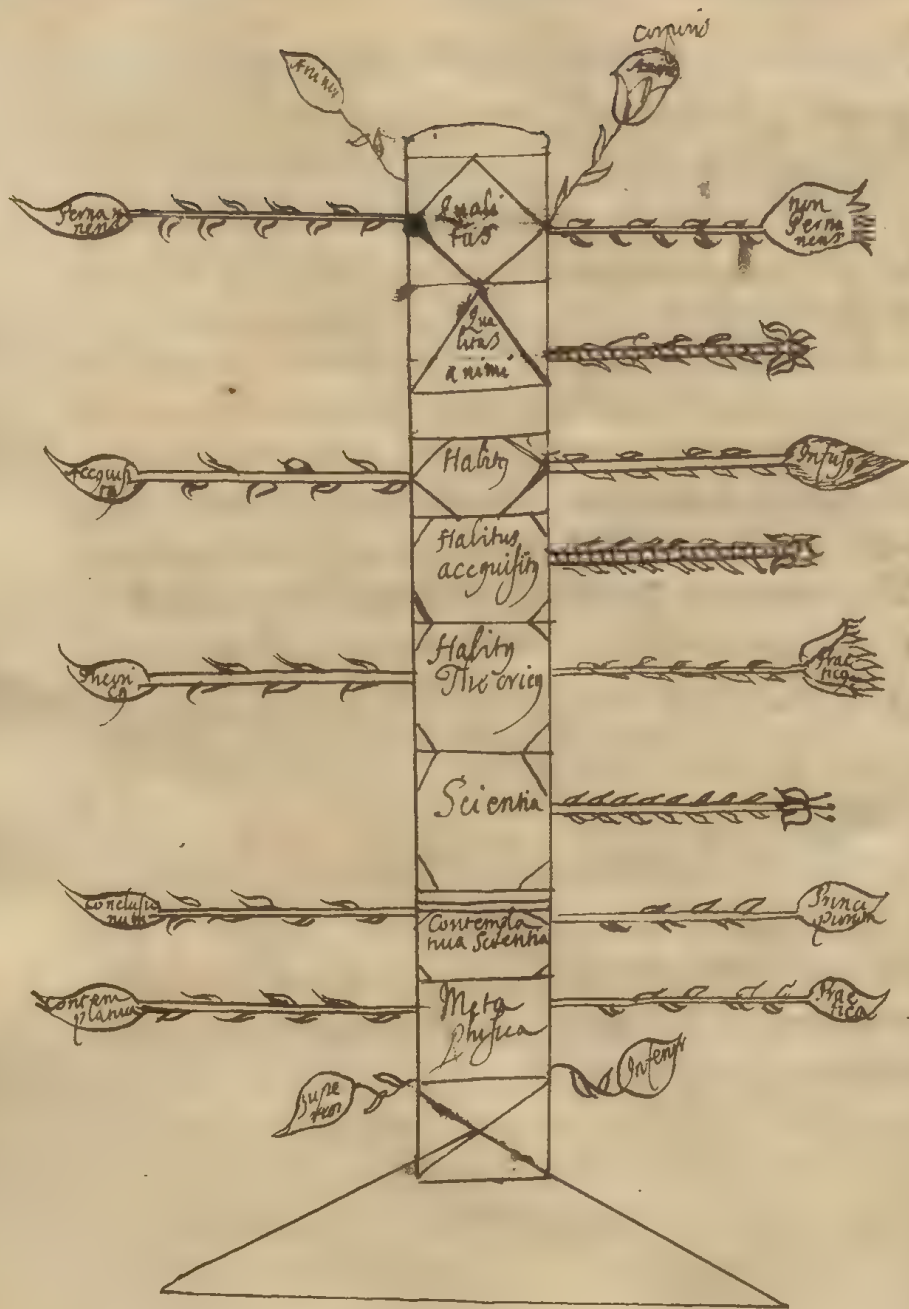 Corporis
Animi
Animi
Perma
nens
Quali
tas
non
Perma
nens
Qua
litas
animi
Acquisi
tꝯ
Habitꝯ
Infusꝯ
Habitus
acquisitꝯ
Theori
cꝯ
Habitꝯ
Theoricꝯ
Prac
ticꝯ
Scientia
Conclusio
num
Contempla
tiua Scientia
Princi
piorum
Contem
platiua
Meta
Phisica
Prac
tica
Supe
rior
Inferior